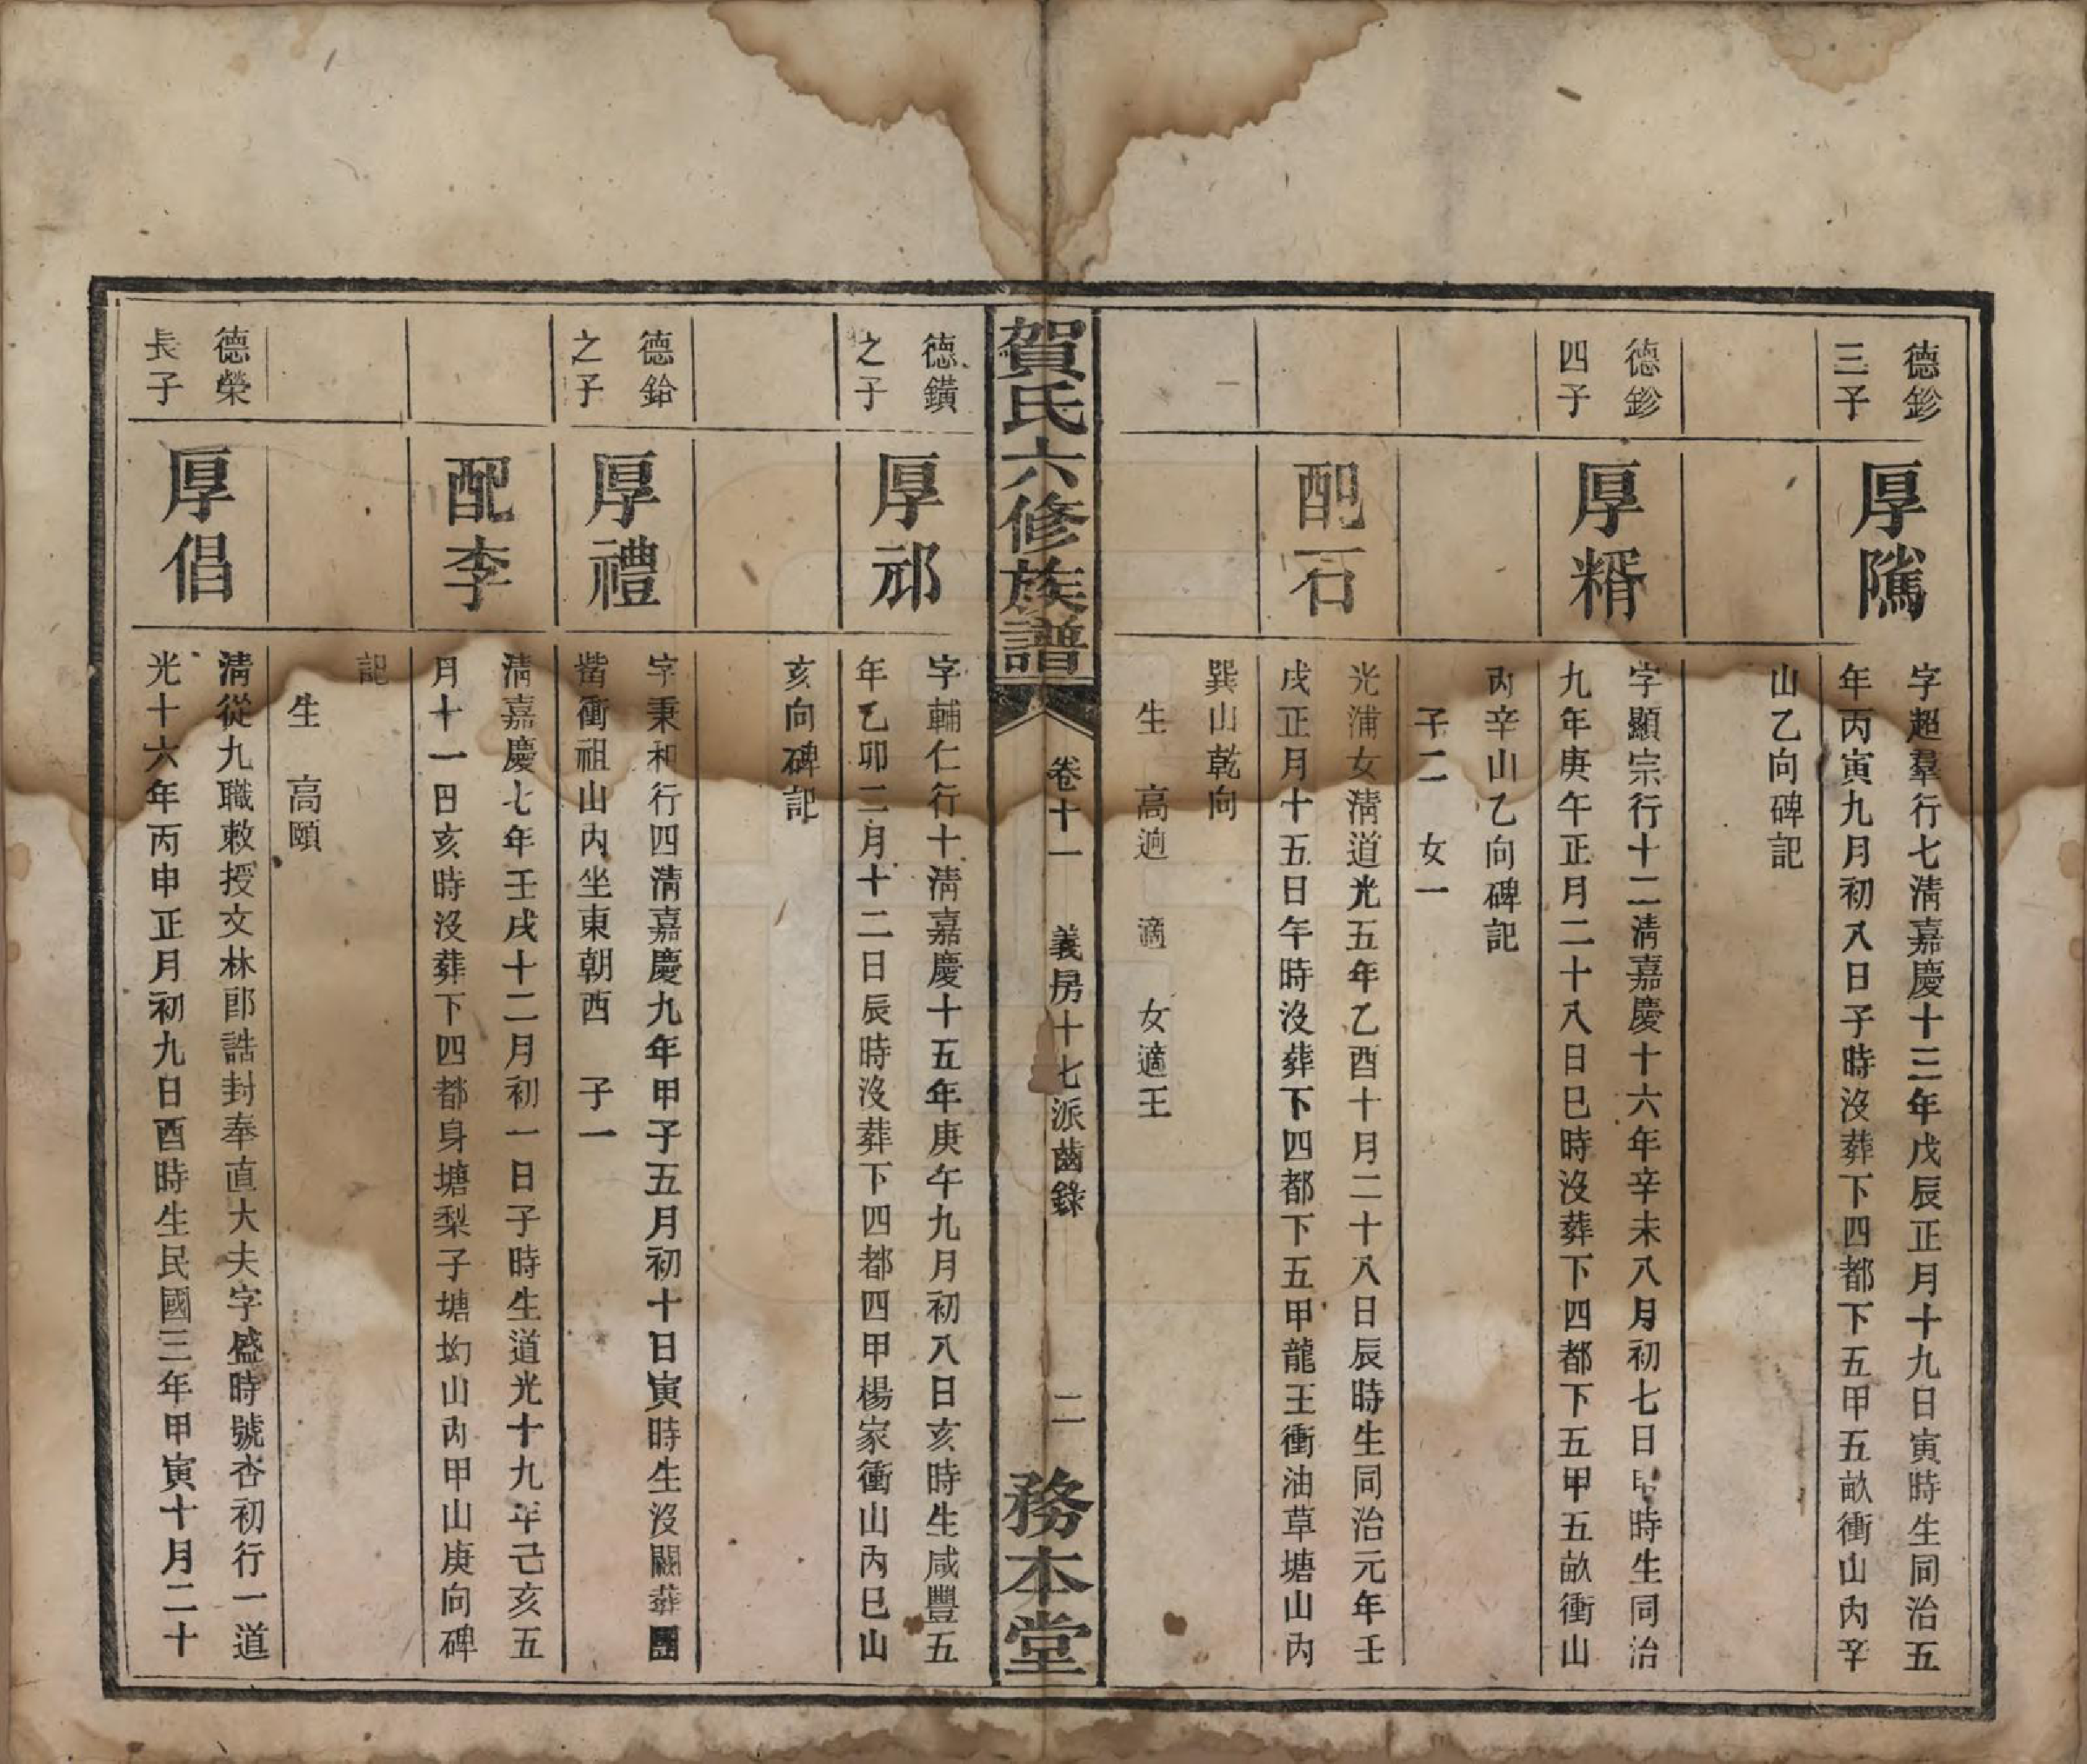 德鉁
三子
厚隲
字超羣行七淸嘉慶十三年戊辰正月十九日寅時生同治五
年丙寅九月初八日子時沒葬下四都下五甲五畝衝山內辛
山乙向碑記
德鉁
四子
厚糈
字顯宗行十二淸嘉慶十六年辛未八月初七日時生同治
九年庚午正月二十八日巳時沒葬下四都下五甲五畝衝山
內辛山乙向碑記
子二 女一
配石
光浦女淸道光五年乙酉十月二十八日辰時生同治元年壬
戌正月十五日午時沒葬下四都下五甲龍王衝油草塘山內
巽山乾向
生 高逈 適 女適王
賀氏六修族譜
卷十一 義房十七派齒錄
二
務本堂
德鐄
之子
厚邧
字輔仁行十淸嘉慶十五年庚午九月初八日亥時生咸豐五
年乙卯二月十二日辰時沒葬下四都四甲楊家衝山內巳山
亥向碑記
德鈴
之子
厚禮
字秉和行四淸嘉慶九年甲子五月初十日寅時生沒闕葬團
衝祖山內坐東朝西 子一
配李
淸嘉慶七年壬戌十二月初一日子時生道光十九年己亥五
月十一日亥時沒葬下四都身塘梨子塘坳山內甲山庚向碑
記
生 高頤
德榮
長子
厚倡
淸從九職敕授文林郎誥封奉直大夫字盛時號杏初行一道
光十六年丙申正月初九日酉時生民國三年甲寅十月二十